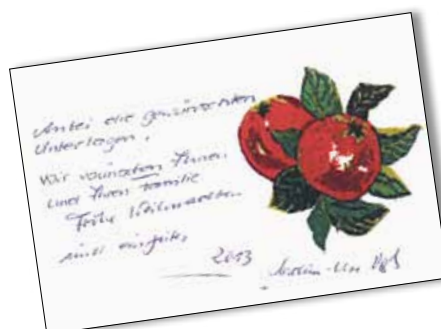 Anbei die gewünschten
Unterlagen.
Wir wünschen Ihnen
und Ihrer Familie
Frohe Weihnachten
und ein gutes
2013